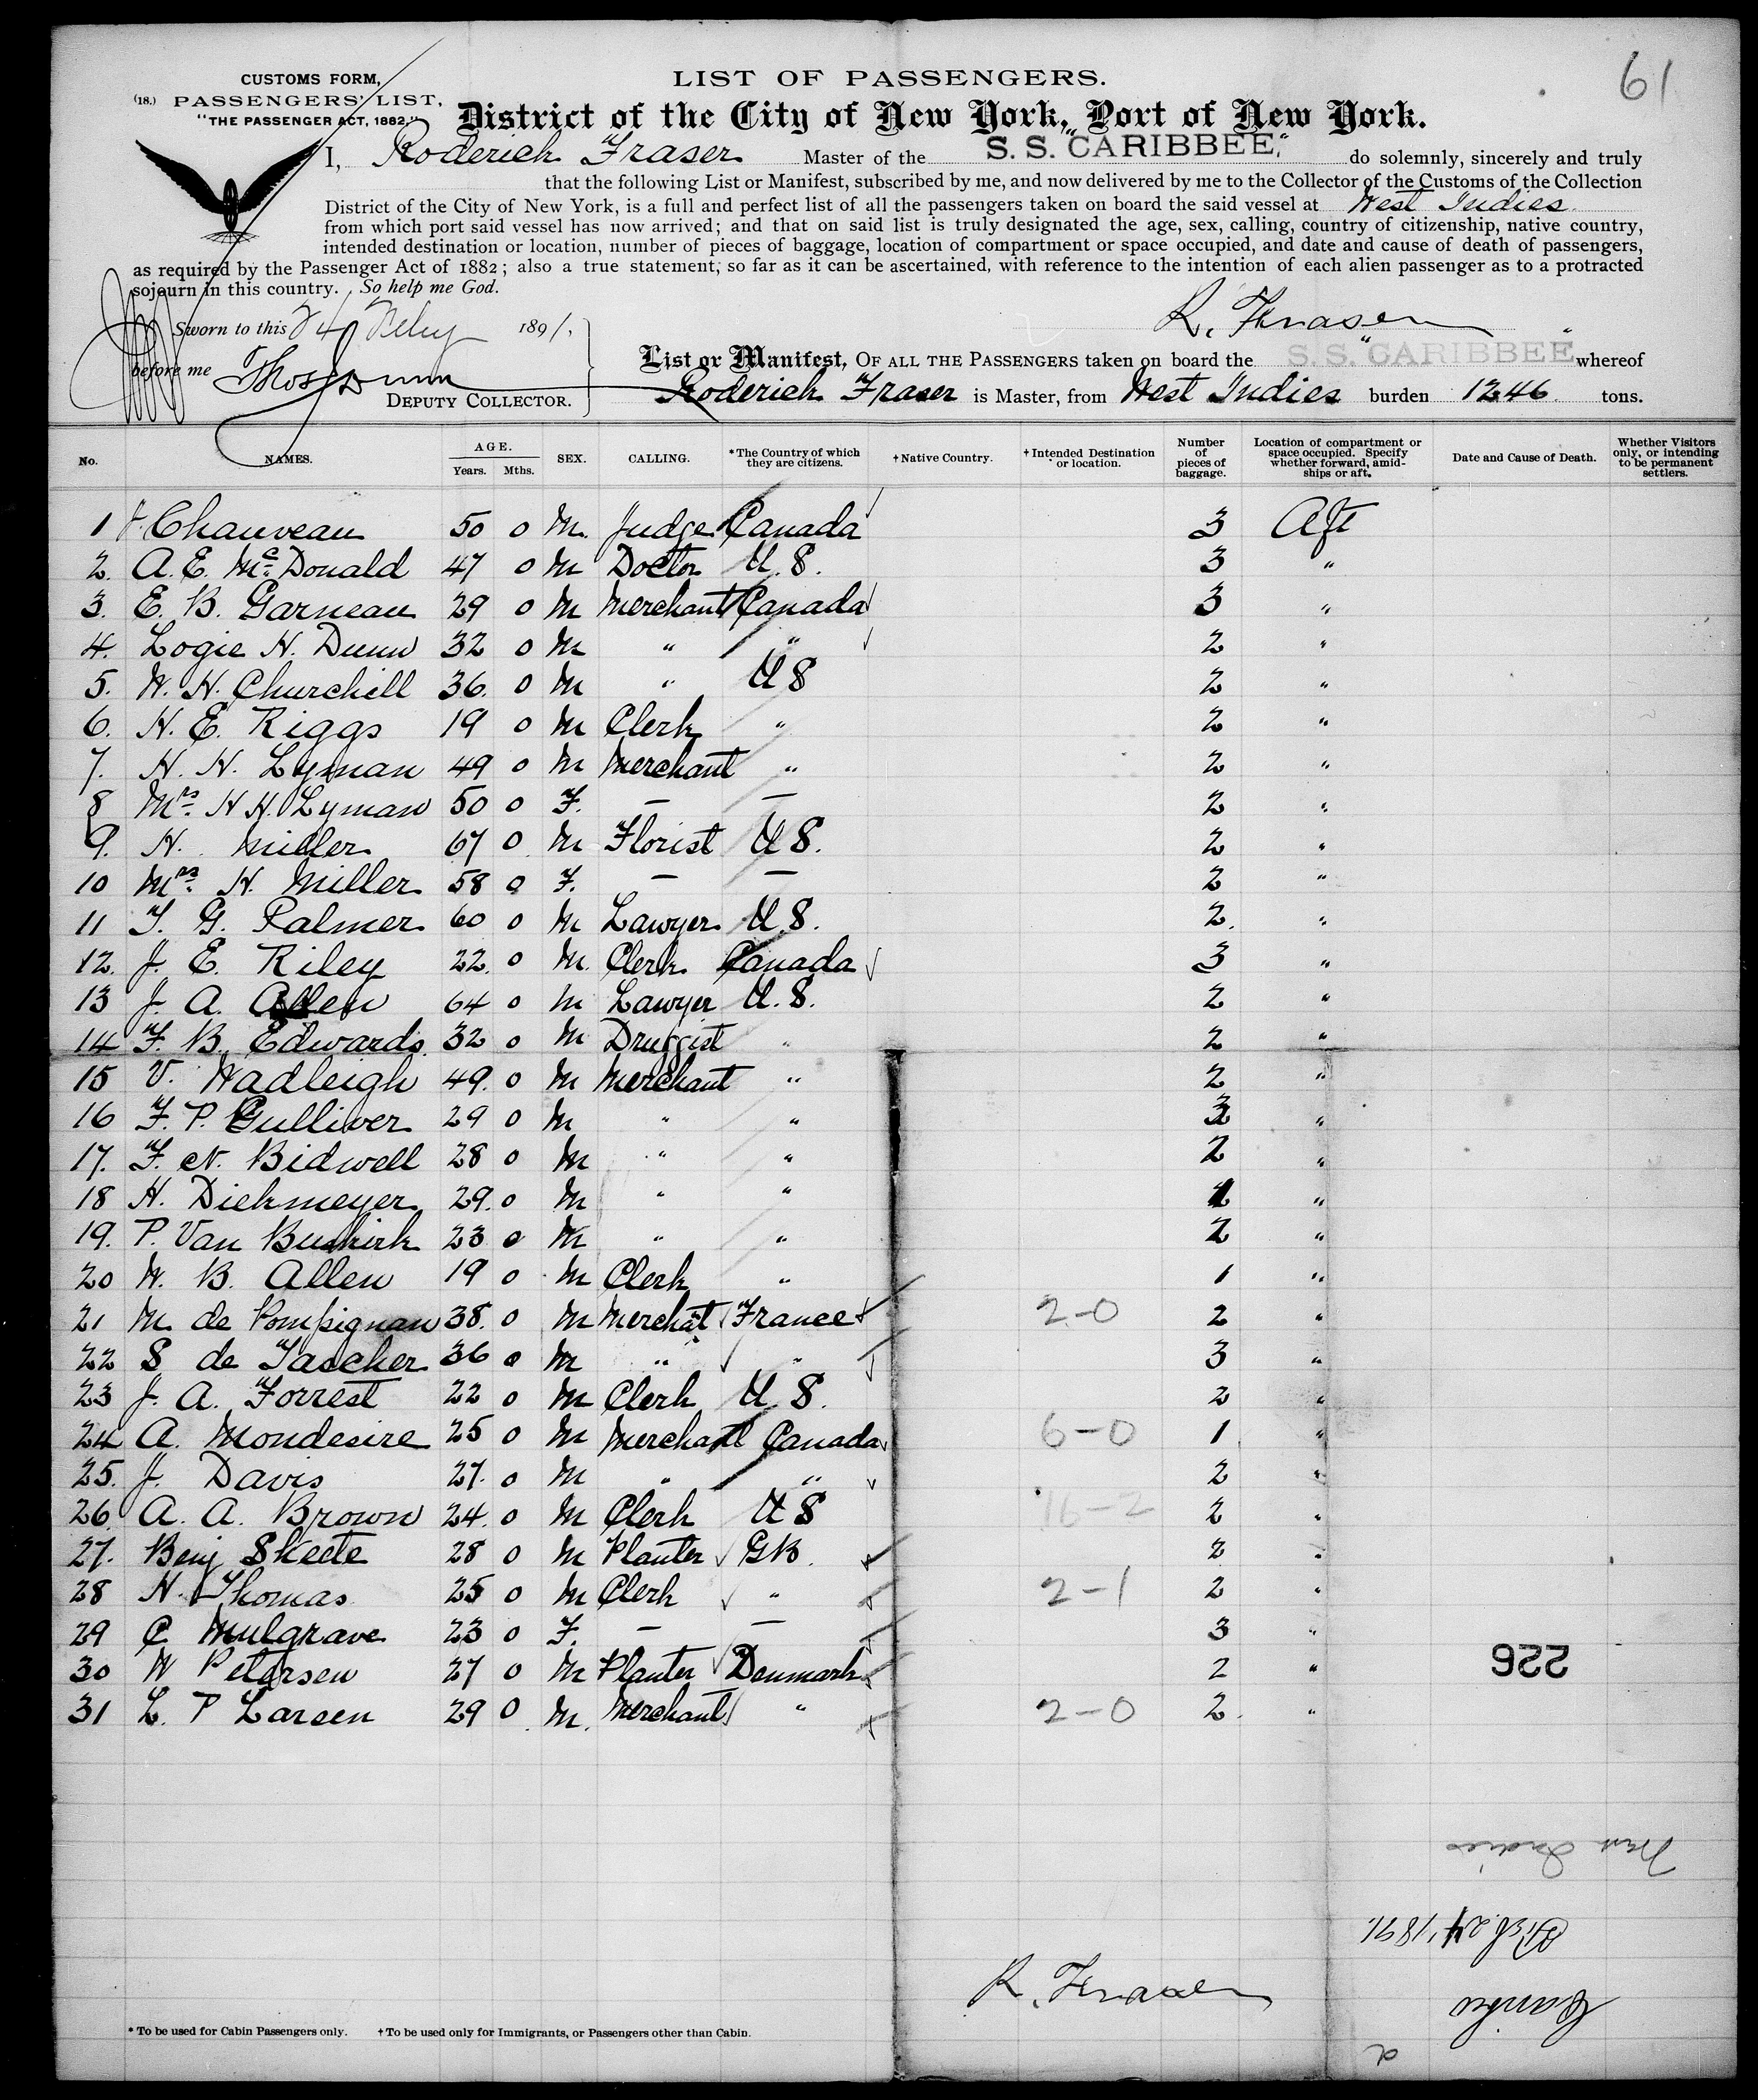 61
CUSTOMS FORM,
(18.) PASSENGERS' LIST,
"THE PASSENGER ACT, 1882."
LIST OF PASSENGERS.
District of the City of New York, Port of New York.
I, Roderick Fraser Master of the S. S. "CARIBBEE," do solemnly, sincerely and truly
that the following List or Manifest, subscribed by me, and now delivered by me to the Collector of the Customs of the Collection
District of the City of New York, is a full and perfect list of all the passengers taken on board the said vessel at West Indies
from which port said vessel has now arrived; and that on said list is truly designated the age, sex, calling, country of citizenship, native country,
intended destination or location, number of pieces of baggage, location of compartment or space occupied, and date and cause of death of passengers,
as required by the Passenger Act of 1882; also a true statement, so far as it can be ascertained, with reference to the intention of each alien passenger as to a protracted
sojourn in this country. So help me God.
R. Fraser
Sworn to this 24 Feby 1891.
before me Thos Dunn
DEPUTY COLLECTOR.
List or Manifest, OF ALL THE PASSENGERS taken on board the S. S. "CARIBBEE" whereof
Roderick Fraser is Master, from West Indies burden 1246 tons.
No. NAMES. AGE. Years. Mths. SEX. CALLING. *The Country of which they are citizens. †Native Country. †Intended Destination or location. Number of pieces of baggage. Location of compartment or space occupied. Specify whether forward, amidships or aft. Date and Cause of Death. Whether Visitors only, or intending to be permanent settlers.
1 J. Chauveau 50 0 M. Judge Canada 3 Aft
2. A. E. McDonald 47 0 M Doctor U. S. 3 "
3. E. B. Garneau 29 0 M Merchant Canada 3 "
4. Logie H. Dunn 32 0 M " " 2 "
5. W. H. Churchill 36. 0 M " U S 2 "
6. H. E. Riggs 19 0 M Clerk " 2 "
7. H. H. Lyman 49 0 M Merchant " 2 "
8 Mrs H H. Lyman 50 0 F. — — 2 "
9. H. Miller 67 0 M Florist U S. 2 "
10 Mrs. H. Miller 58 0 F. — — 2 "
11 T. G. Palmer 60 0 M Lawyer U. S. 2. "
12. J. E. Riley 22. 0 M. Clerk Canada 3 "
13 J. A. Allen 64 0 M Lawyer U. S. 2 "
14 F. B. Edwards 32 0 M Druggist " 2 "
15 V. Hadleigh 49. 0 M Merchant " 2 "
16 F. P. Gulliver 29 0 M " " 3 "
17. F. N. Bidwell 28 0 M " " 2 "
18 H. Diekmeyer 29. 0 M " " 1 "
19. P. Van Buskirk 23 0 M " " 2 "
20 W. B. Allen 19 0 M Clerk " 1 "
21 M. de Pompignan 38. 0 M Merchat France 2-0 2 "
22 S de Tascher 36 0 M " " 3 "
23 J. A. Forrest 22 0 M Clerk U S. 2 "
24 A. Mondesire 25 0 M Merchant Canada 6-0 1 "
25. J. Davis 27. 0 M " " 2 "
26. A. A. Brown 24. 0 M Clerk U S 16-2 2 "
27. Benj Skeete 28 0 M Planter GB. 2 "
28 H. Thomas 25 0 M Clerk " 2-1 2 "
29 C Mulgrave 23 0 F. — — 3 "
30 W Petersen 27 0 M Planter Denmark 2 "
31 L. P Larsen 29 0 M. Merchant " 2-0 2. "
226
West Indies
Feb. 24, 1891.
Caribee
R. Fraser
*To be used for Cabin Passengers only. †To be used only for Immigrants, or Passengers other than Cabin.